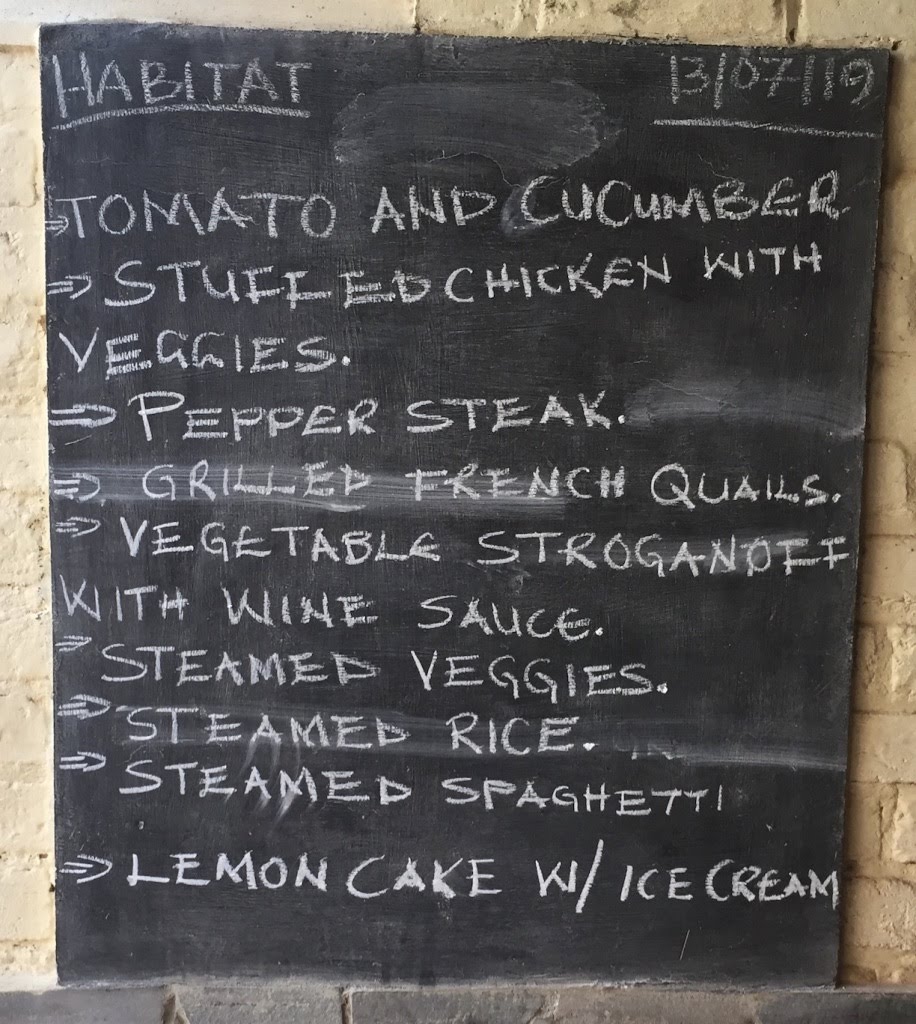 HABITAT 13/07/19
⇒TOMATO AND CUCUMBER
⇒ STUFFED CHICKEN WITH
VEGGIES.
⇒ PEPPER STEAK.
⇒ GRILLED FRENCH QUAILS.
⇒ VEGETABLE STROGANOFF
WITH WINE SAUCE.
⇒ STEAMED VEGGIES.
⇒ STEAMED RICE.
⇒ STEAMED SPAGHETTI
⇒ LEMON CAKE W/ ICE CREAM